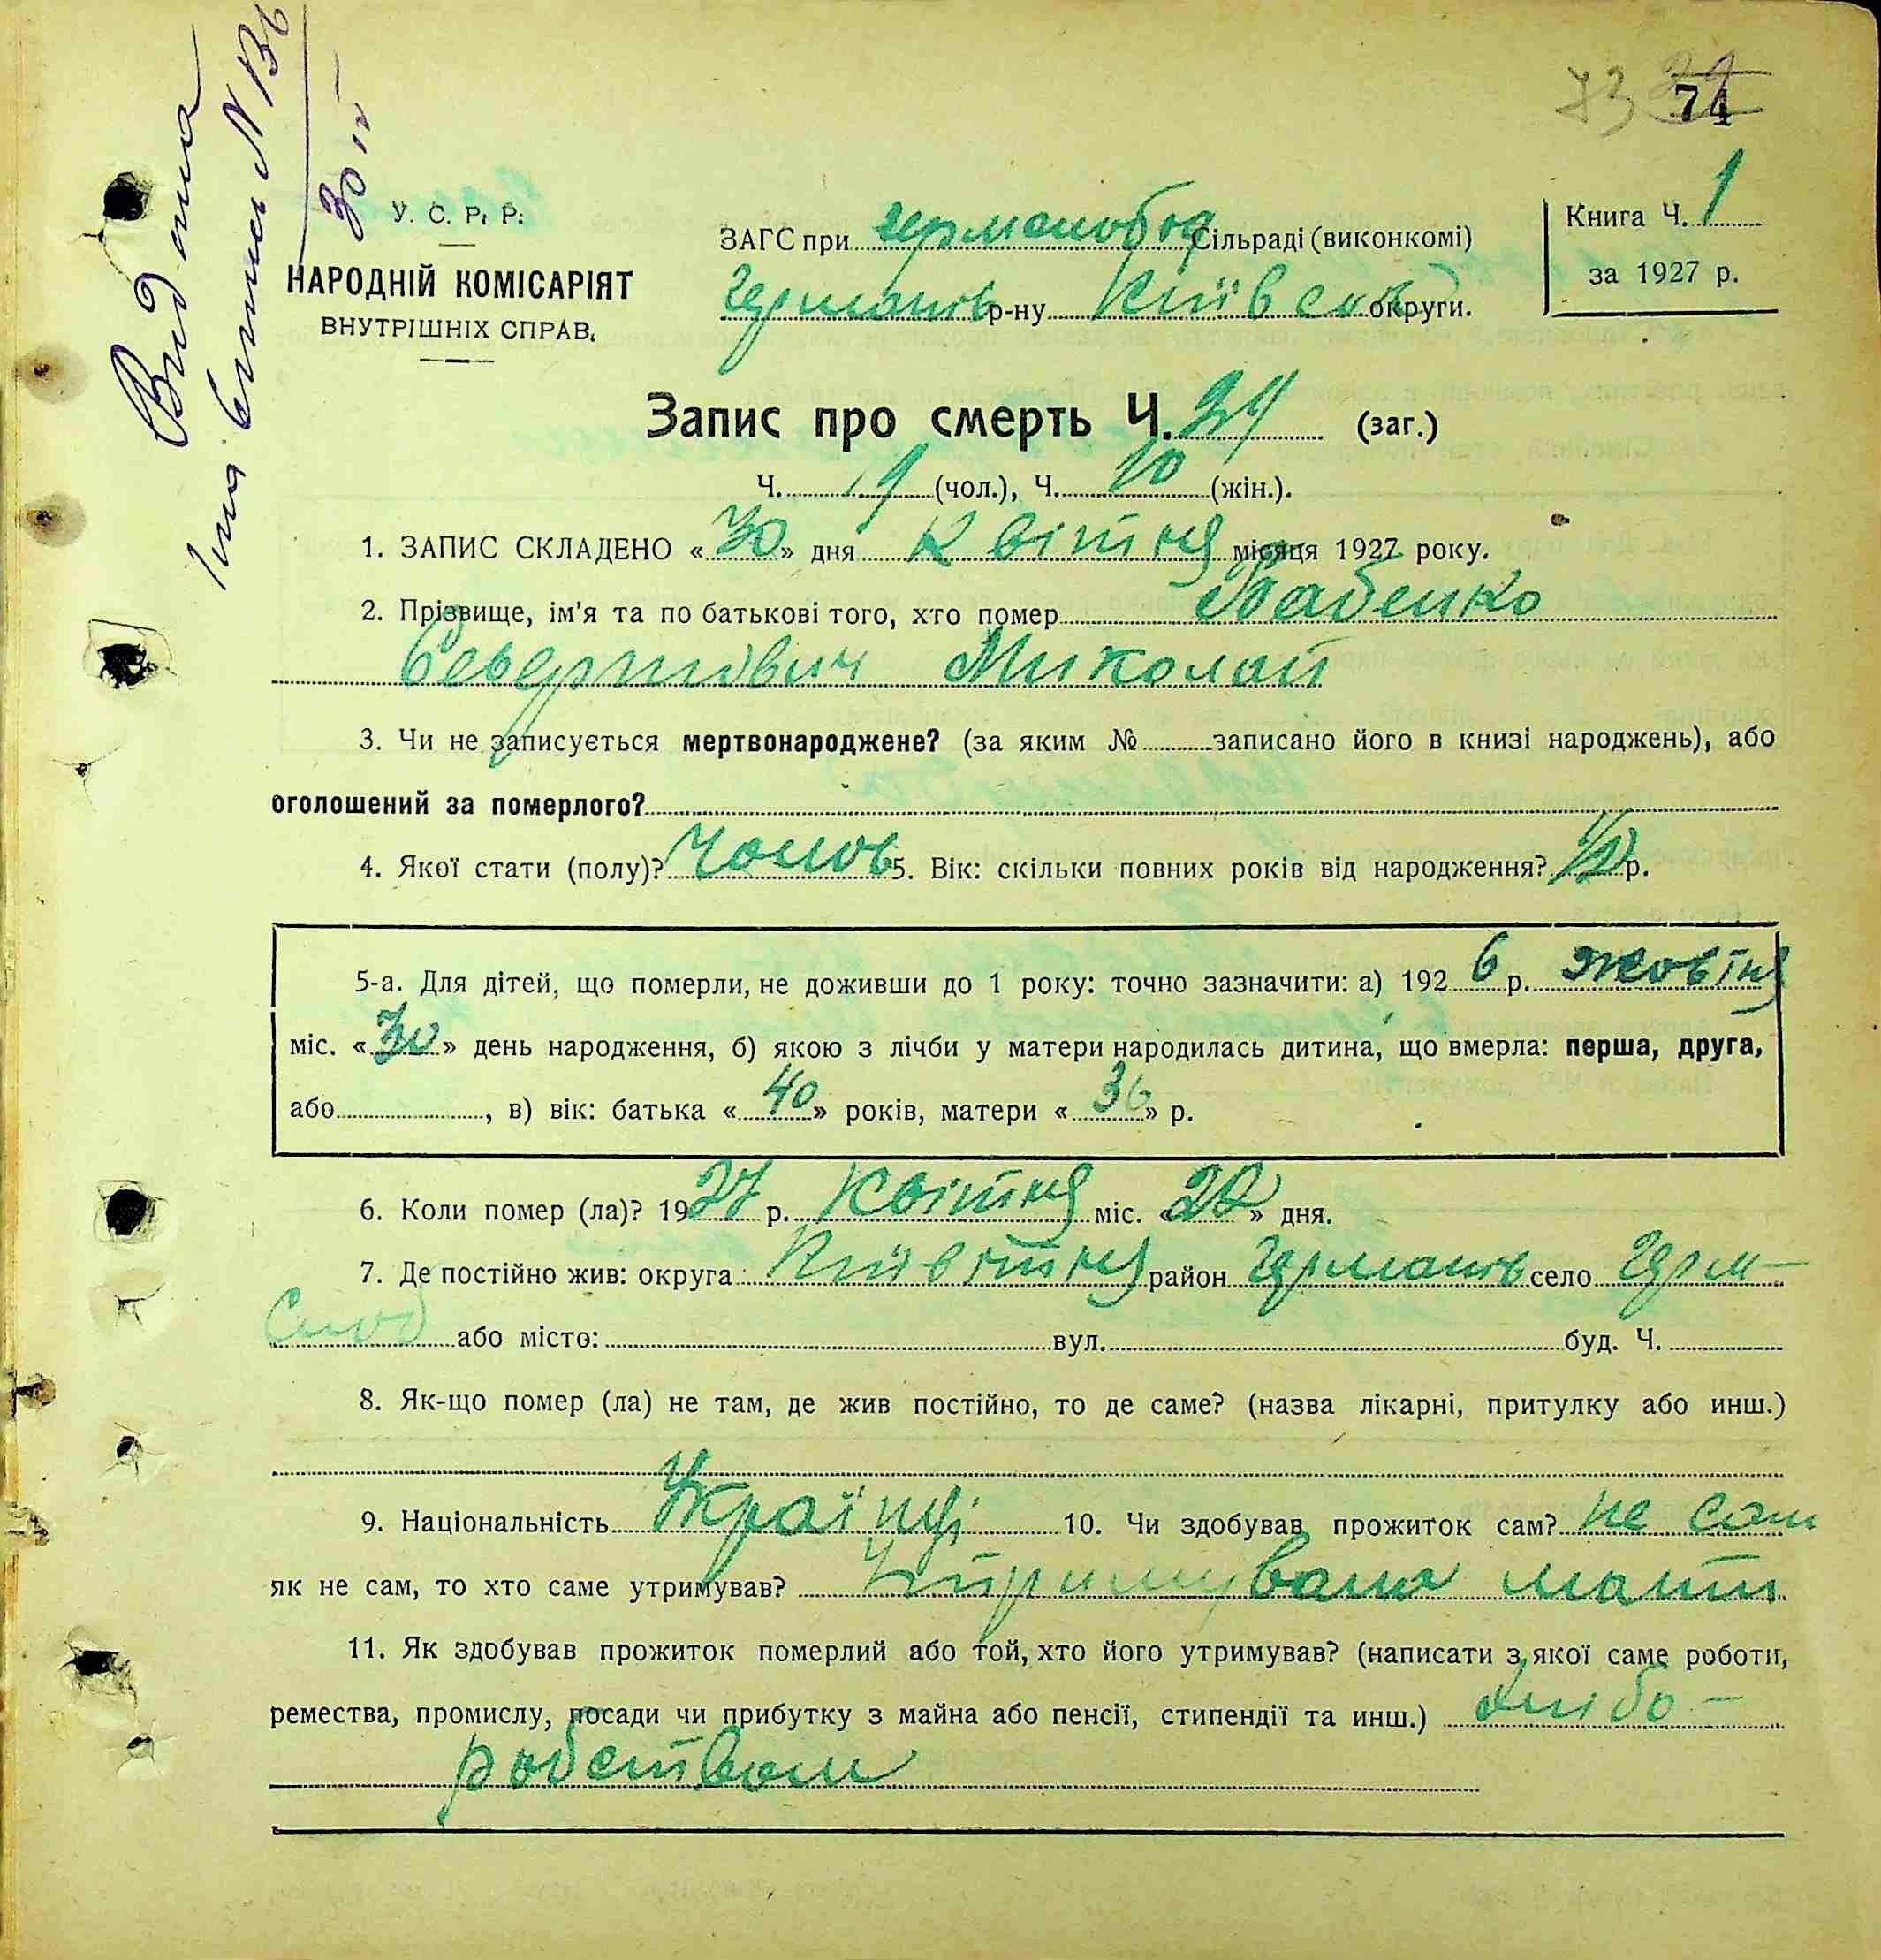 Видана
виписка N 136
30 IV
73
74
У. С. Р. Р.
НАРОДНІЙ КОМІСАРІЯТ
ВНУТРІШНІХ СПРАВ.
ЗАГС при Сільраді (виконкомі)
Германів р-ну Київськ округи.
Книга Ч. 1
за 1927 р.
Запис про смерть Ч. (заг.)
Ч. (чол.), Ч. 10 (жін.).
1. ЗАПИС СКЛАДЕНО «30» дня Квітня місяця 1927 року.
2. Прізвище, ім'я та по батькові того, хто помер Бабенко
Миколай
3. Чи не записується мертвонароджене? (за яким № записано його в книзі народжень), або
оголошений за померлого?
4. Якої стати (полу)? Чолов 5. Вік: скільки повних років від народження? р.
5-а. Для дітей, що померли, не доживши до 1 року: точно зазначити: а) 192 6 р. жовтня
міс. «30» день народження, б) якою з лічби у матери народилась дитина, що вмерла: перша, друга,
або , в) вік: батька «40» років, матери «36» р.
6. Коли помер (ла)? 1927 р. Квітня міс. « » дня.
7. Де постійно жив: округа район Германів село Герм-
Слоб або місто: вул. буд. Ч.
8. Як-що помер (ла) не там, де жив постійно, то де саме? (назва лікарні, притулку або инш.)
9. Національність Українці 10. Чи здобував прожиток сам? не сам
як не сам, то хто саме утримував? Утримувала мати
11. Як здобував прожиток померлий або той, хто його утримував? (написати з якої саме роботи,
ремества, промислу, посади чи прибутку з майна або пенсії, стипендії та инш.) Хлібо-
робством